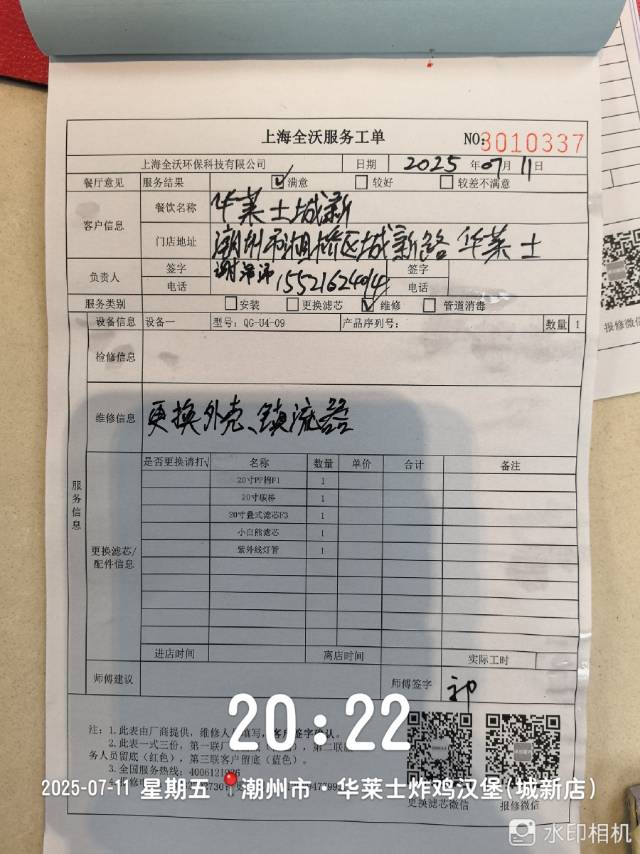 上海全沃服务工单
NO: 3010337
上海全沃环保科技有限公司 日期 2025 年 07 月 11 日
餐厅意见 服务结果 满意 较好 较差不满意
客户信息 餐饮名称 华莱士城新
门店地址 潮州市湘桥区城新路 华莱士
负责人 签字 签字
电话 电话
服务类别 安装 更换滤芯 维修 管道消毒
设备信息 设备一 型号: QG-U4-09 产品序列号: 数量 1
检修信息
维修信息 更换外壳、镇流器
服务信息
更换滤芯/配件信息
是否更换请打√ 名称 数量 单价 合计 备注
20寸PP棉F1 1
20寸碳棒 1
20寸叠式滤芯F3 1
小白熊滤芯 1
紫外线灯管 1
进店时间 离店时间 实际工时
师傅建议 师傅签字
注: 1.此表由厂商提供, 维修人员填写, 客户签字确认。
2.此表一式三份, 第一联厂
第二联
务人员留底(红色), 第三联客户留底(蓝色)。
3.全国服务热线: 4006121
更换滤芯微信 报修微信
20:22
2025-07-11 星期五 潮州市·华莱士炸鸡汉堡(城新店)
水印相机
报修微信